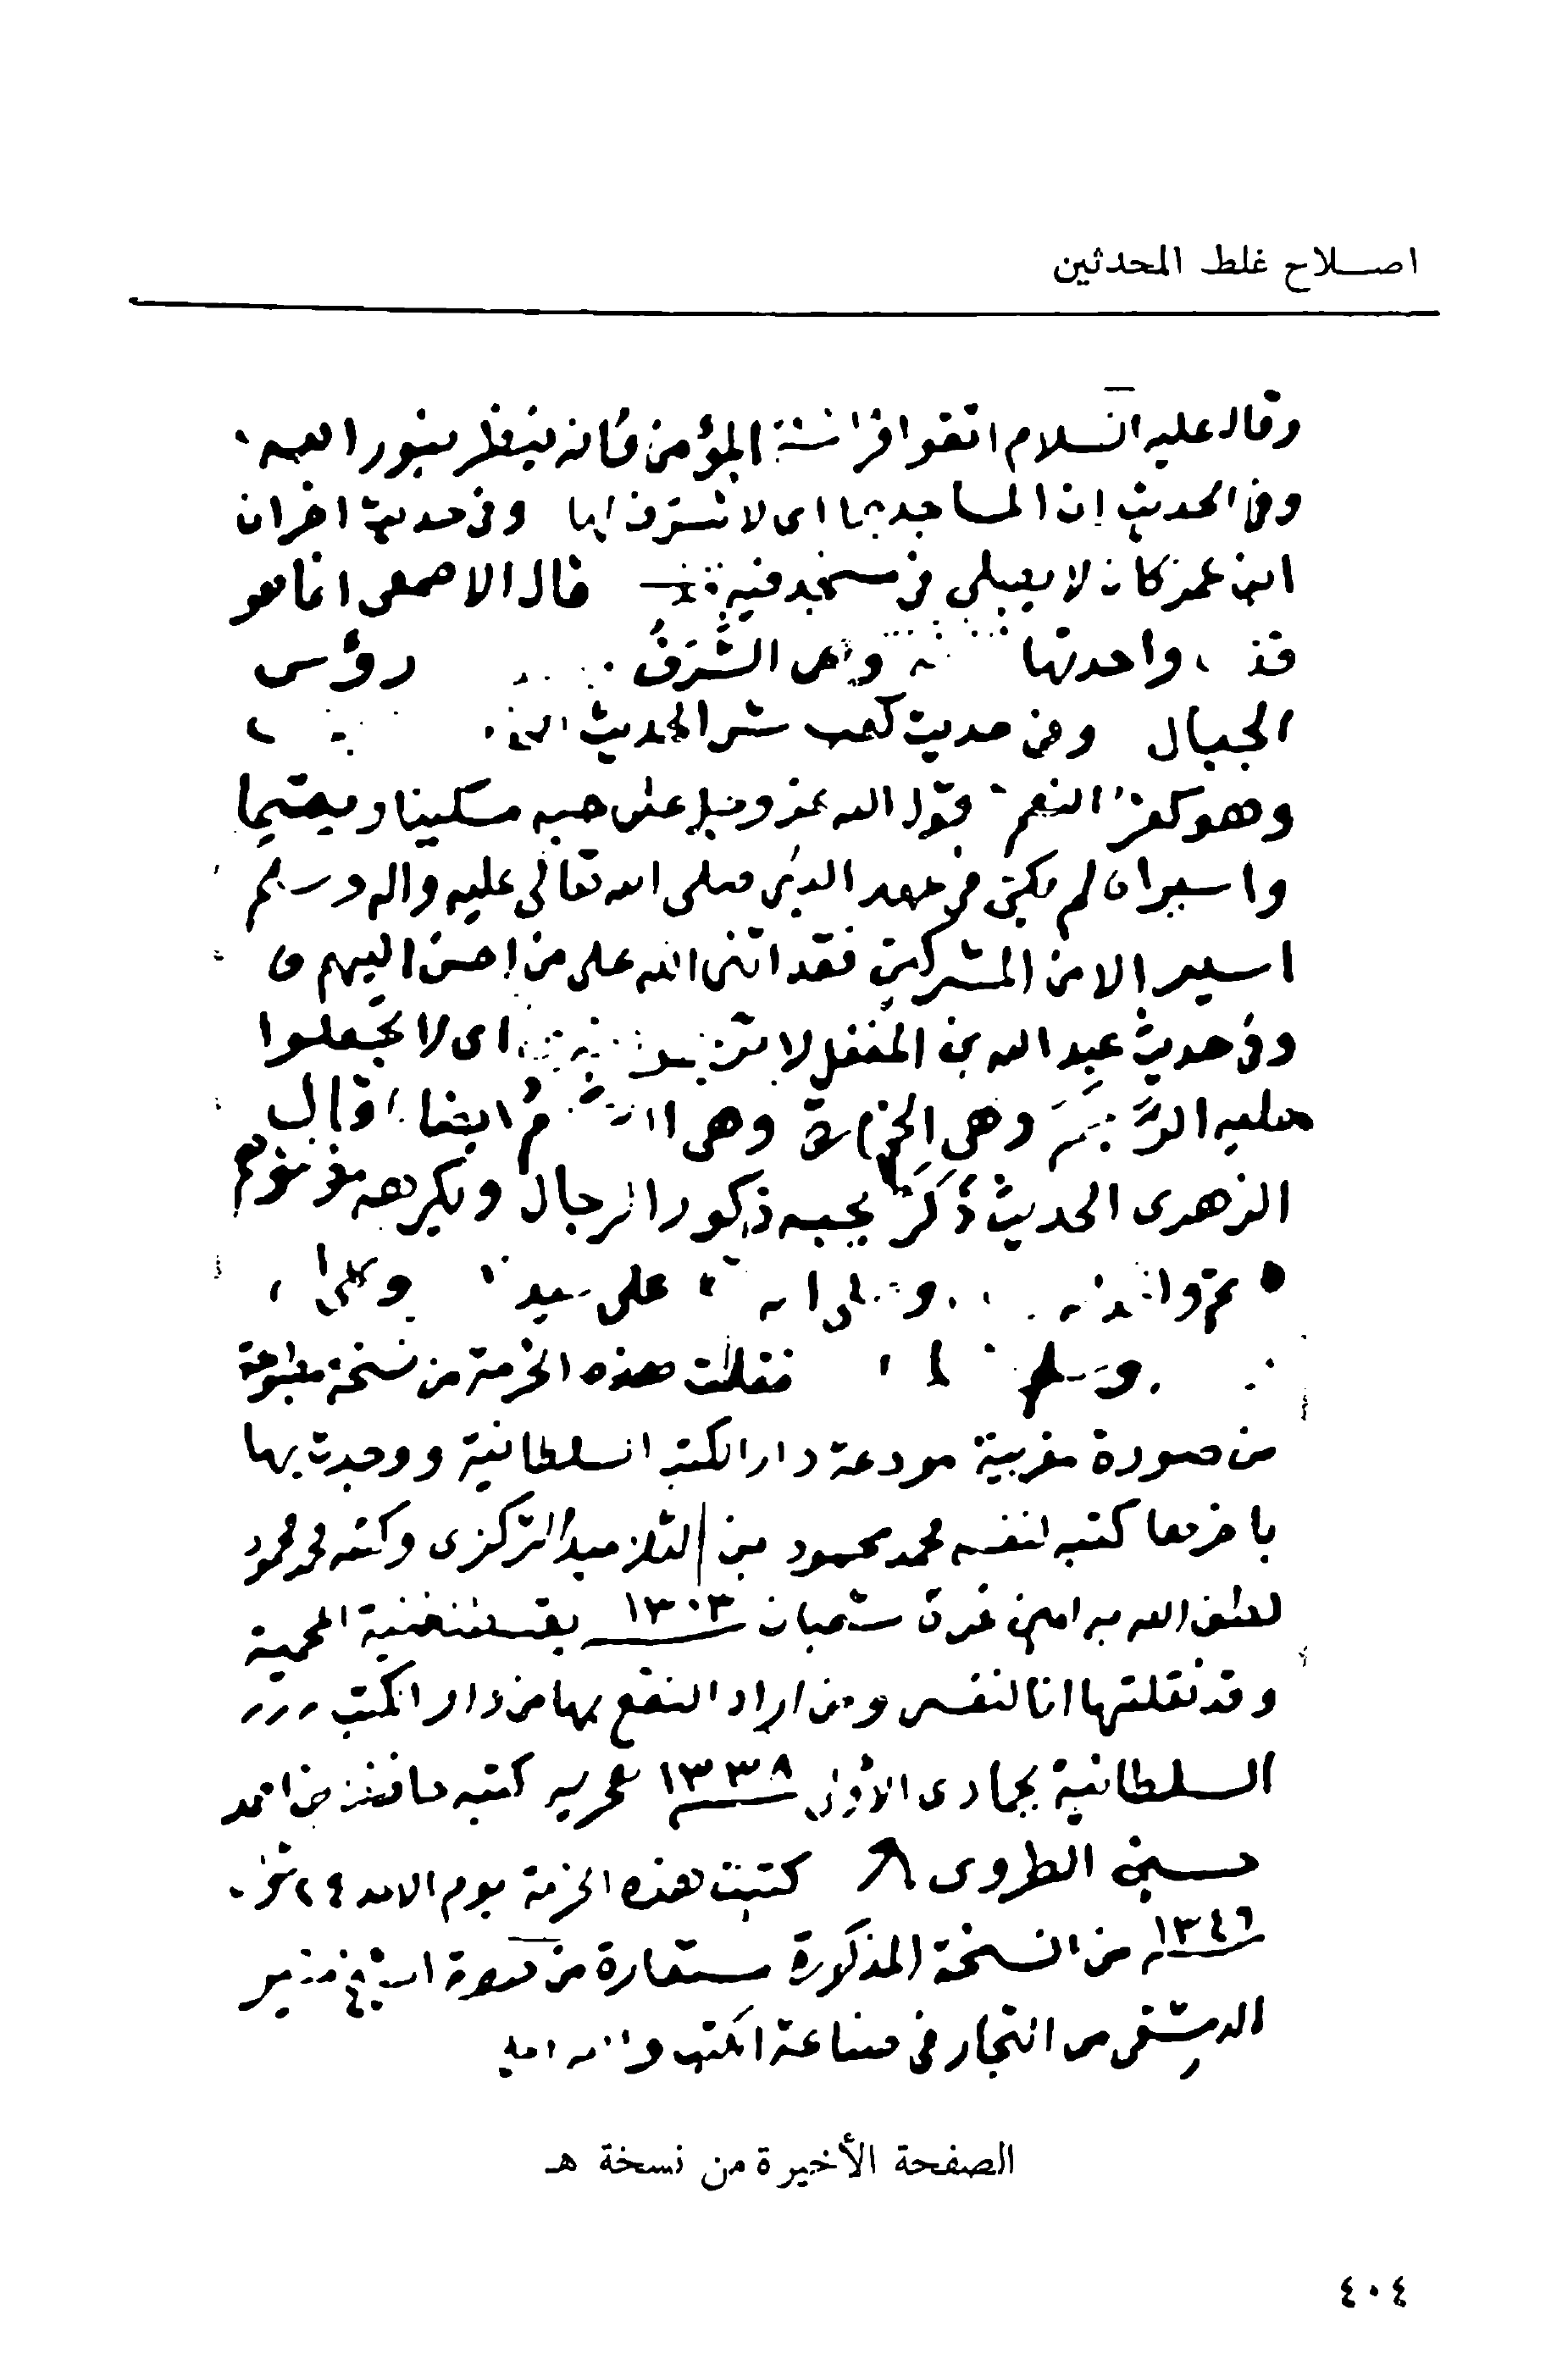 اصلاح غلط المحدثين
وقال عليه السلام اتقوا فراسة المؤمن فانه ينظر بنور الله
وفى الحديث ان المساجد جما اى لا شرف لها وفى حديث اخر ان
ابن عمر كان لا يصلى فى مسجد فيه قال الاصمعى انما هو
واحدتها وهى الشرف رؤس
الجبال وفى حديث كعب شر الحديث
وهو كفر النعم قول الله عز وجل على حبه مسكينا ويتيما
واسيرا لم يكن فى عهد النبى صلى الله تعالى عليه واله وسلم
اسير الا من المشركين فقد اثنى الله على من احسن اليهم
وفى حديث عبد الله بن المغفل لا اى لا تجعلوا
عليه وهى وهى ايضا وقال
الزهرى الحديث ذكر يحبه ذكور الرجال ويكرهه مؤنثوهم
تم على
وسلم نقلت هذه الخرمة من نسخة مطبوعة
من صورة مغربية مودعة دار الكتب السلطانية ووجدت بها
باخرها كتبه لنفسه محمد محمود بن التلاميد التركزى وكتبه محمد محمود
لطف الله به امين غرة شعبان ١٣٠٣ بقسطنطنية المحمية
وقد نقلتها انا لنفسى ومن اراد النفع بها من دار الكتب
السلطانية بجمادى الأولى ١٣٣٨ هجرية كتبه حافظ بن احمد
حسين الطروى كتبت هذه الخرمة يوم الاحد ٢٤
١٣٤٦ من النسخة المذكورة مستعارة من الشيخ منير
الدمشقى من التجار فى صناعة الكتب
الصفحة الأخيرة من نسخة هـ
٤٠٤